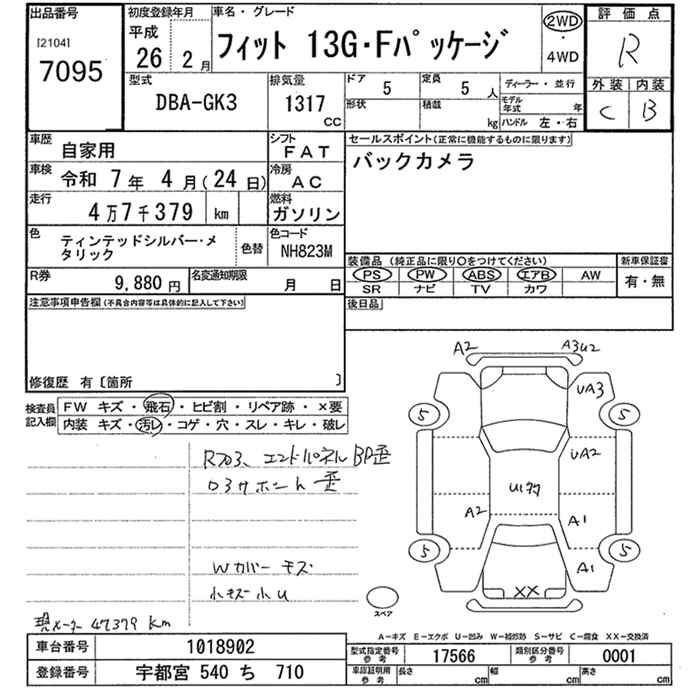 出品番号
[2104]
7095
初度登録年月
平成
26 2 月
車名・グレード
フィット 13G・Fパッケージ
2WD
・
4WD
評価点
R
外装 内装
C B
型式
DBA-GK3
排気量
1317
CC
ドア
5
定員
5 人
形状
積載
kg
ディーラー・並行
モデル年式 年
ハンドル 左・右
車歴
自家用
シフト
FAT
車検
令和 7 年 4 月(24 日)
冷房
AC
走行
4万7千379 km
燃料
ガソリン
色
ティンテッドシルバー・メタリック
色替
色コード
NH823M
R券
9,880 円
名変通知期限
月 日
セールスポイント(正常に機能するものに限ります)
バックカメラ
装備品(純正品に限り○をつけてください)
PS PW ABS エアB AW
SR ナビ TV カワ
新車保証書
有・無
後日品
注意事項申告欄(不具合内容等は具体的に記入して下さい)
修復歴 有〔箇所 〕
検査員記入欄
FW キズ・飛石・ヒビ割・リペア跡・×要
内装 キズ・汚レ・コゲ・穴・スレ・キレ・破レ
エンドパネル
Wカバー キズ
小キズ小U
現メーター 47379 km
A2
A3U2
UA3
5
5
UA2
A2
A1
5
5
A1
XX
スペア
A-キズ E-エクボ U-凹み W-補修跡 S-サビ C-腐食 XX-交換済
車台番号
1018902
登録番号
宇都宮 540 ち 710
型式指定番号
参考
17566
類別区分番号
参考
0001
車認証明用
参考
長さ cm
幅 cm
高さ cm